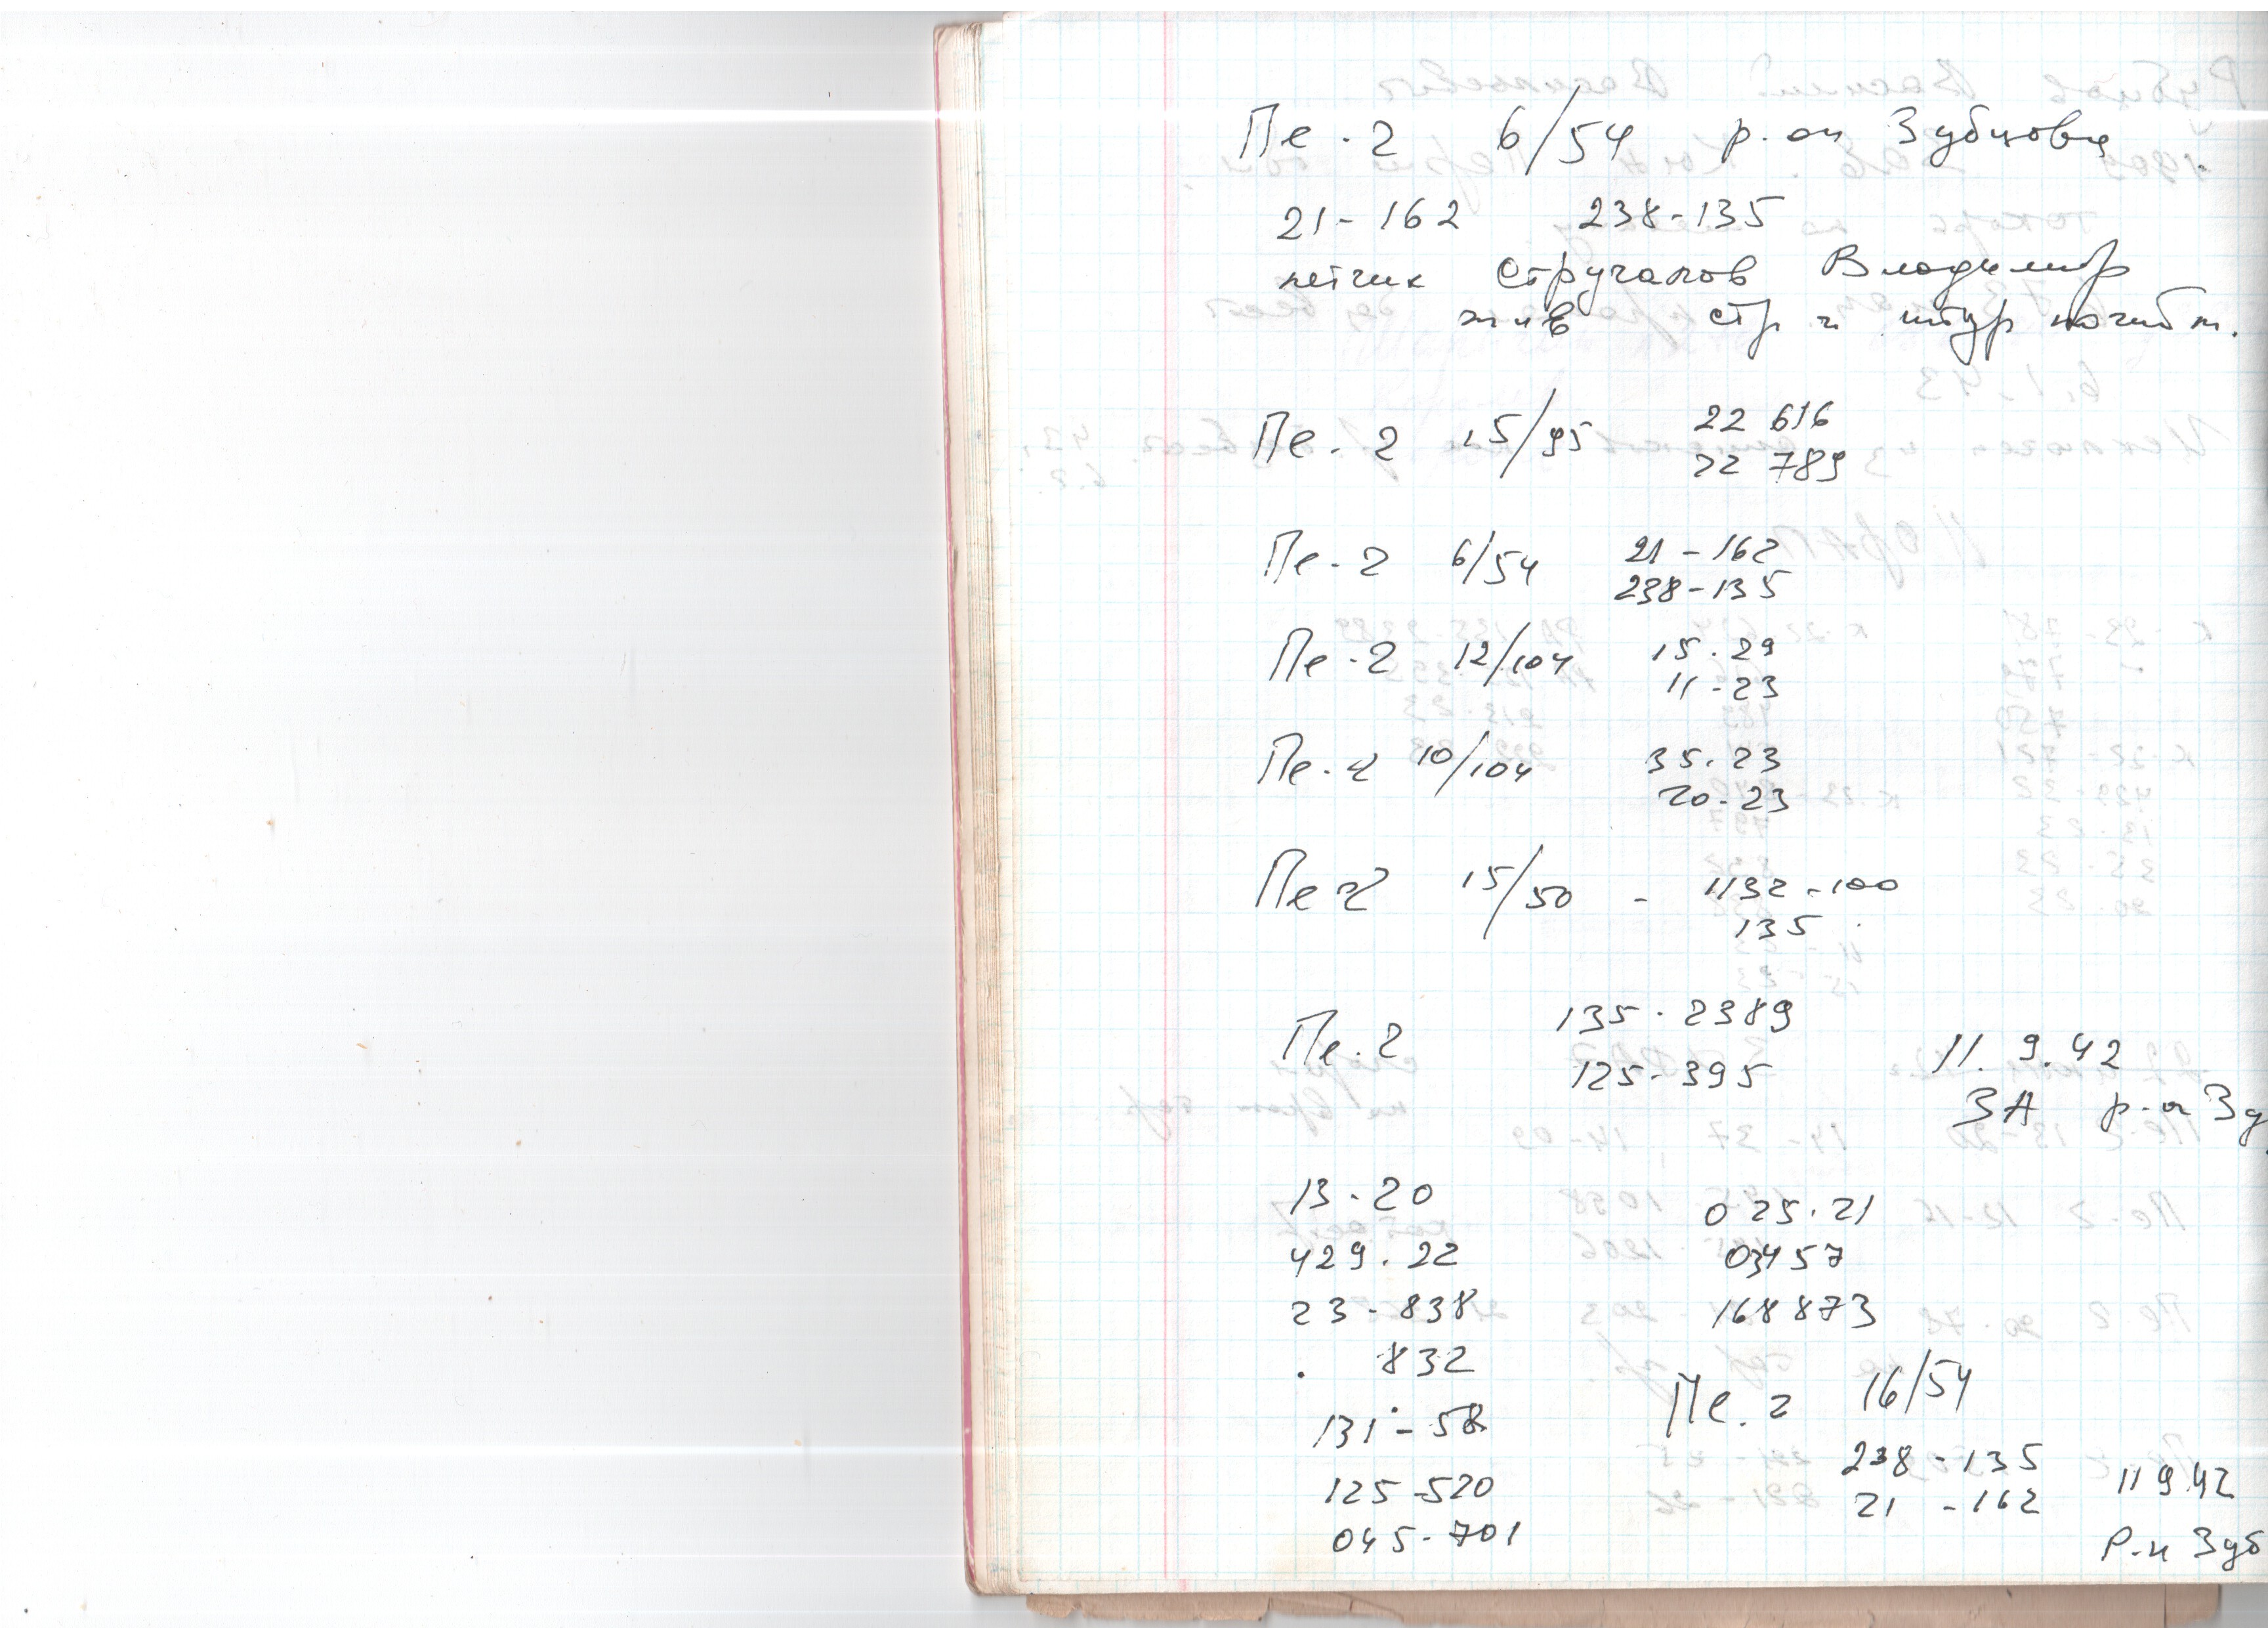 Пе-2 6/54 р-он Зубцова
21-162 238-135
летчик Стручалов Владимир
жив стр и штур погибли.
Пе-2 15/95 22 616
22 789
Пе-2 6/54 21-162
238-135
Пе-2 12/104 15-29
11-23
Пе-2 10/104 35-23
20-23
Пе-2 15/50 - 1132-100
135
135-2389
Пе-2 125-395 11.9.42
ЗА р-н Зу
13-20 025-21
429-22 03457
23-838 168873
832
131-58 Пе-2 16/54
125-520 238-135 11 9.42
045-701 21-162
Р-н Зуб